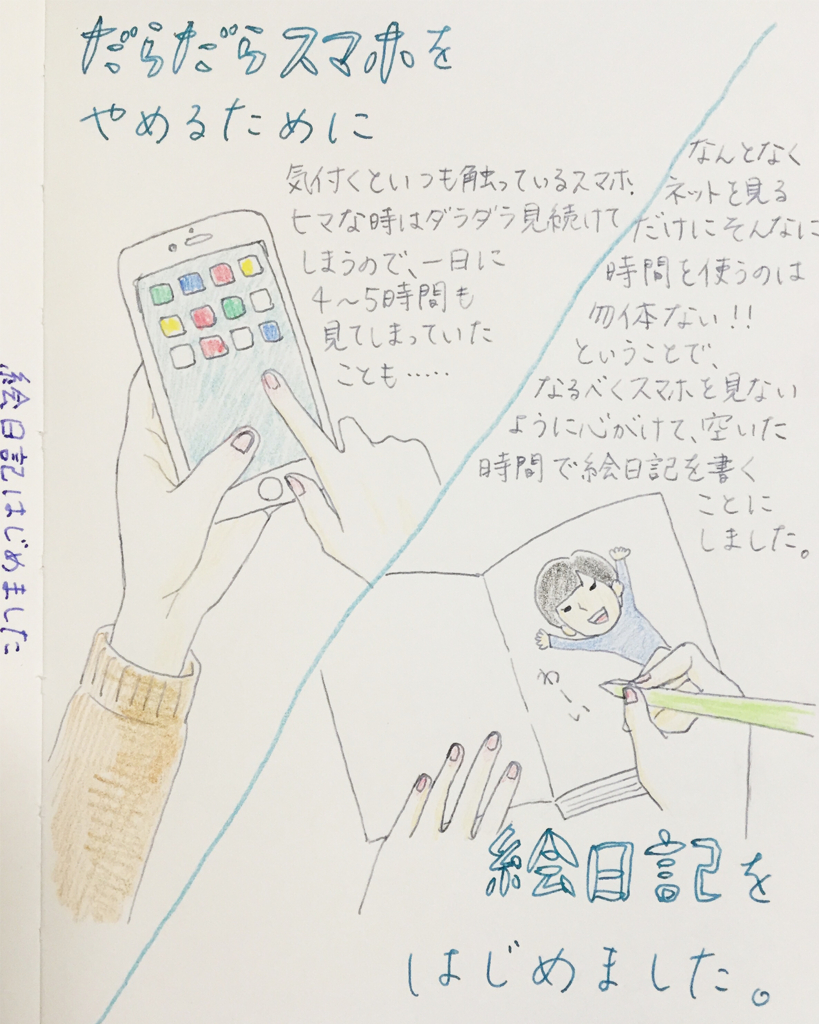 だらだらスマホを
やめるために
気付くといつも触っているスマホ.
ヒマな時はダラダラ見続けて
しまうので、一日に
4〜5時間も
見てしまっていた
ことも‥‥‥
なんとなく
ネットを見る
だけにそんなに
時間を使うのは
勿体ない!!
ということで、
なるべくスマホを見ない
ように心がけて、空いた
時間で絵日記を書く
ことに
しました。
わーい
絵日記を
はじめました。
絵日記はじめました